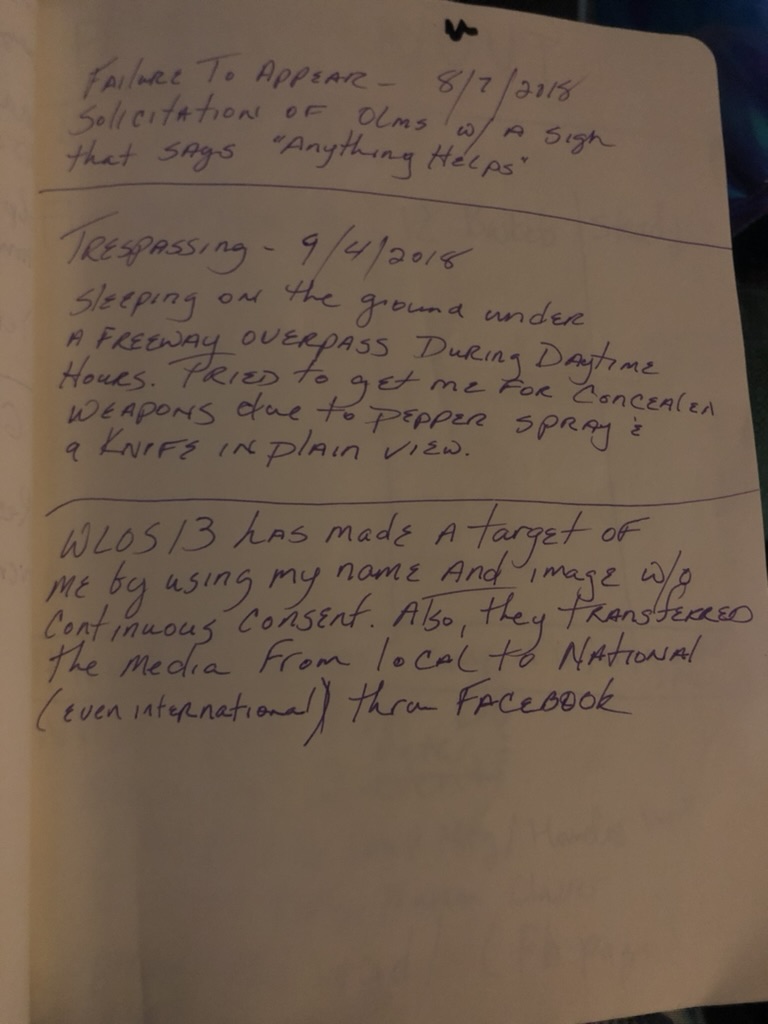 FAILURE TO APPEAR - 8/7/2018
SOLICITATION OF OLMS W/ A SIGN
that SAYS "Anything HELPS"
TRESPASSING - 9/4/2018
SLEEPING ON the ground under
A FREEWAY OVERPASS DURING DAYTIME
HOURS. TRIED to get me FOR CONCEALED
WEAPONS due to PEPPER SPRAY &
a KNIFE IN plain VIEW.
WLOS 13 hAS MADE A target OF
ME by using my name And image w/o
Continuous Consent. Also, they TRANSFERRED
the MEDIA From local to NATIONAL
(even international) thru FACEBOOK